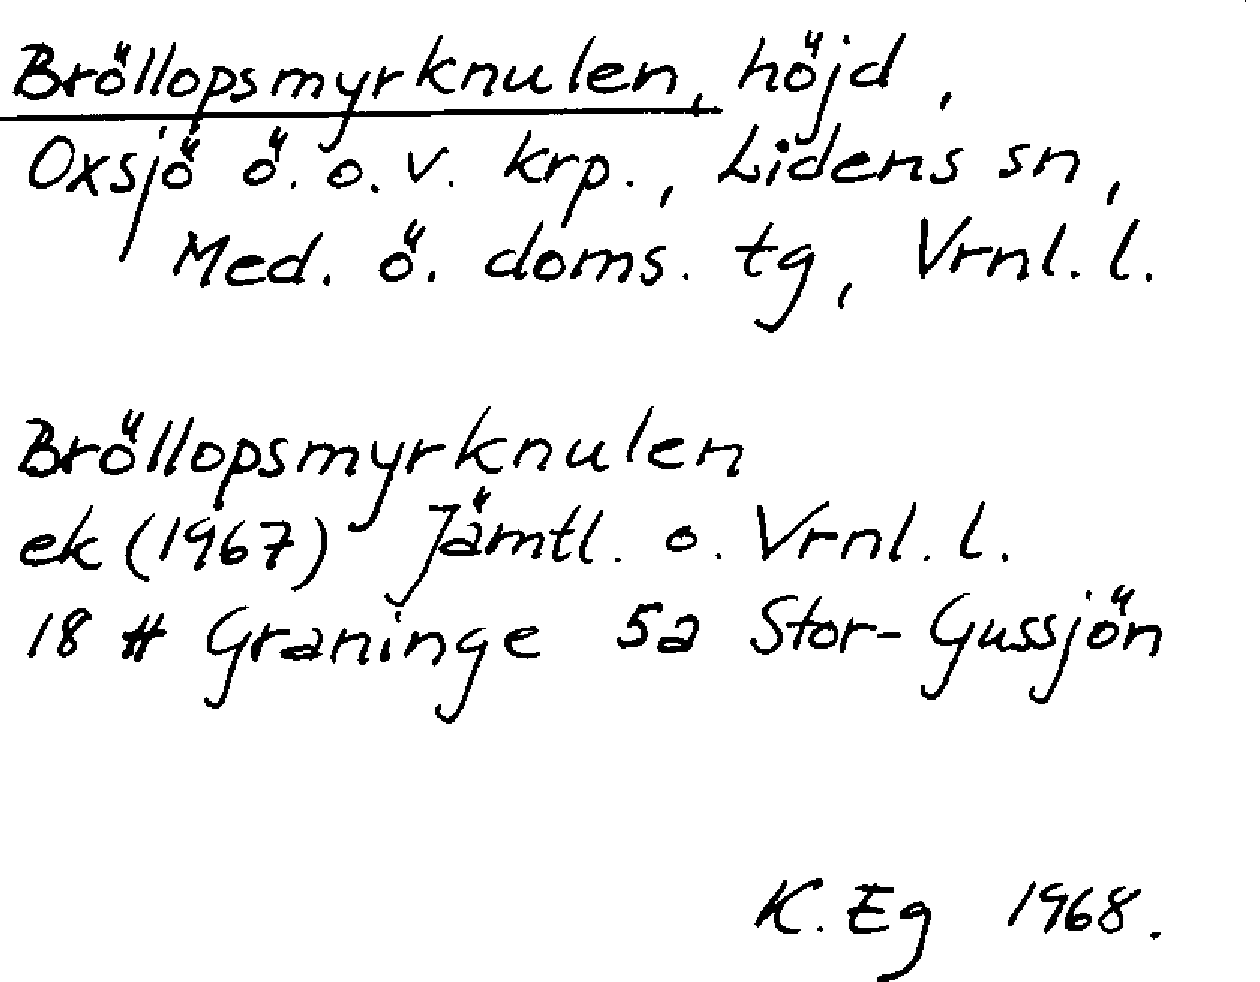 Bröllopsmyrknulen, höjd,
Oxsjö ö. o. v. krp., Lidens sn,
Med. ö. doms. tg, Vrnl. l.
Bröllopsmyrknulen
ek (1967) Jämtl. o. Vrnl. l.
18 H Graninge 5a Stor-Gussjön
K. Eg 1968.